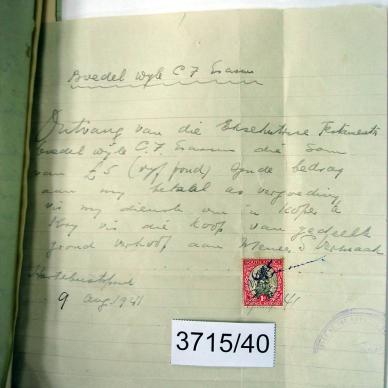 Boedel wyle C F Erasmus
Ontvang van die Eksekutrise Testamentêr
boedel wyle C. F. Erasmus die som
van £5 (vyf pond) synde bedrag
aan my betaal as vergoeding
vir my dienste om 'n koper te
kry vir die koop van gedeelte
grond verkoop aan Meneer Vermaak
Hartebeestfontein
9 Aug. 1941
41
3715/40